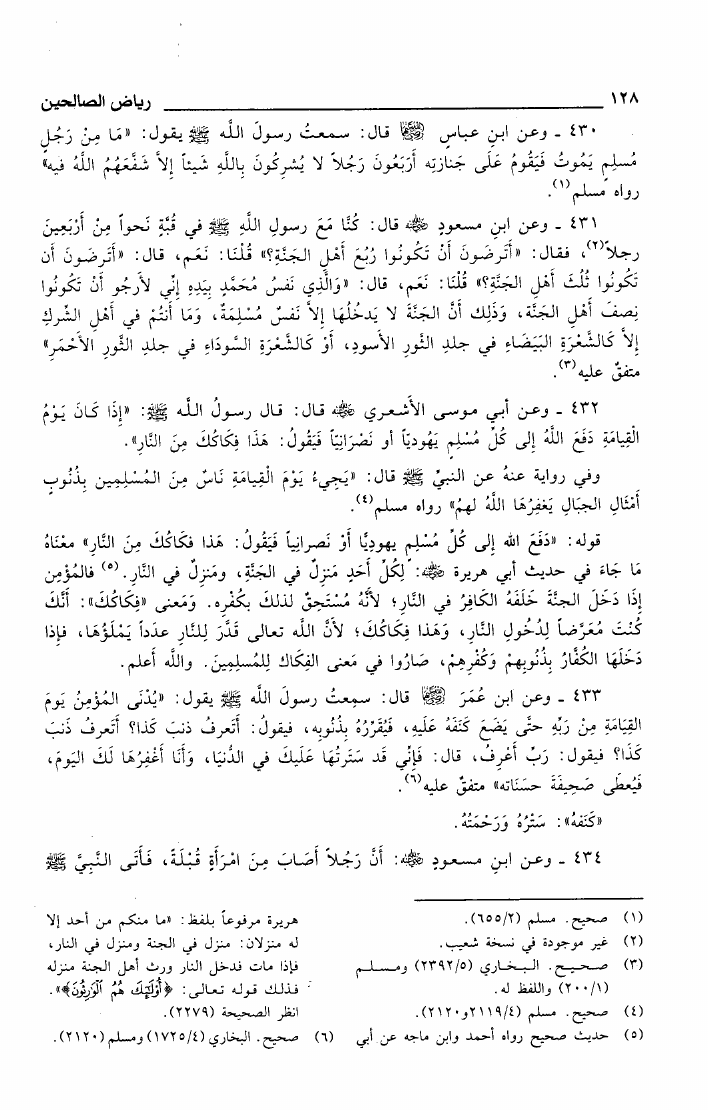 ١٢٨ رياض الصالحين
٤٣٠ ـ وعن ابنِ عباسٍ ﵄ قال: سمعتُ رسولَ اللَّه ﷺ يقول: «مَا مِنْ رَجُلٍ
مُسْلِمٍ يَمُوتُ فَيَقُومُ عَلَى جَنازتِه أَرْبَعُونَ رَجُلاً لا يُشرِكُونَ بِاللَّهِ شَيئاً إلاَّ شَفَّعَهُمُ اللَّهُ فيه»
رواه مسلم(١).
٤٣١ ـ وعن ابنِ مسعودٍ ﵁ قال: كُنَّا مَعَ رسولِ اللَّهِ ﷺ في قُبَّةٍ نَحواً مِنْ أَرْبَعِينَ
رجلاً(٢)، فقال: «أَتَرضَونَ أَنْ تَكُونُوا رُبُعَ أَهْلِ الجَنَّةِ؟» قُلْنَا: نَعَم، قال: «أَتَرضَونَ أن
تَكُونُوا ثُلُثَ أَهْلِ الجَنَّةِ؟» قُلْنَا: نَعَم، قال: «وَالَّذِي نَفسُ مُحَمَّدٍ بِيَدِهِ إنِّي لأَرجُو أَنْ تَكُونُوا
نِصفَ أَهْلِ الجَنَّة، وَذَلِك أَنَّ الجَنَّةَ لا يَدخُلُهَا إلاَّ نَفسٌ مُسْلِمَةٌ، وَمَا أَنتُمْ في أَهْلِ الشِّركِ
إلاَّ كَالشَّعْرَةِ البَيضَاءِ في جلدِ الثَّورِ الأَسودِ، أَوْ كَالشَّعْرَةِ السَّودَاءِ في جلدِ الثَّورِ الأَحْمَرِ»
متفقٌ عليه(٣).
٤٣٢ ـ وعن أبي موسى الأشعري ﵁ قال: قال رسولُ اللَّه ﷺ: «إذَا كَانَ يَوْمُ
الْقِيَامَةِ دَفَعَ اللَّهُ إلى كُلِّ مُسْلِمٍ يَهُوديّاً أو نَصْرَانِيّاً فَيَقُولُ: هَذَا فِكَاكُكَ مِنَ النَّارِ».
وفي رواية عنهُ عن النبيِّ ﷺ قال: «يَجِيءُ يَوْمَ الْقِيامَةِ نَاسٌ مِنَ المُسْلِمِين بِذُنُوبٍ
أَمْثَالِ الجبَالِ يَغفِرُهَا اللَّهُ لهمُ» رواه مسلم(٤).
قوله: «دَفَعَ الله إلى كُلِّ مُسْلِمٍ يهودِيًّا أَوْ نَصرانِياً فَيَقُولُ: هَذا فكَاكُكَ مِنَ النَّارِ» معْنَاهُ
مَا جَاءَ في حديث أبي هريرة ﵁: لِكُلِّ أَحَدٍ مَنزِلٌ في الجَنَّةِ، ومَنزِلٌ في النَّارِ.(٥) فالمُؤْمِن
إذَا دَخَلَ الجنَّةَ خَلَفَهُ الكافِرُ في النَّارِ؛ لأَنَّهُ مُسْتَحِقٌ لذلكَ بكُفْرِه. وَمَعنى «فِكَاكُكَ»: أَنَّكَ
كُنتَ مُعَرَّضاً لِدُخُولِ النَّارِ، وَهَذا فِكَاكُكَ؛ لأَنَّ الله تعالى قَدَّرَ لِلنَّارِ عَدَداً يَمْلَؤُهَا، فإذا
دَخَلَهَا الكُفَّارُ بِذُنُوبِهِمْ وَكُفْرِهِمْ، صَارُوا في مَعنى الفِكَاك لِلمُسلِمِينَ. واللَّه أعلم.
٤٣٣ ـ وعن ابن عُمَرَ ﵄ قال: سمِعتُ رسولَ اللَّه ﷺ يقول: «يُدْنَى المُؤْمِنُ يَومَ
القِيَامَةِ مِنْ رَبِّهِ حتَّى يَضَعَ كَنَفَهُ عَلَيهِ، فَيُقَرِّرُهُ بِذُنُوبِه، فيقولُ: أَتَعرفُ ذنبَ كَذا؟ أَتَعرفُ ذَنبَ
كَذَا؟ فيقول: رَبِّ أَعْرِفُ، قال: فَإِنِّي قَد سَتَرتُهَا عَلَيكَ في الدُّنيَا، وَأَنَا أَغْفِرُهَا لَكَ اليَومَ،
فَيُعطَى صَحِيفَةَ حسَنَاته» متفقٌ عليه(٦).
«كَنَفهُ»: سَتْرُهُ وَرَحْمَتُهُ.
٤٣٤ ـ وعن ابنِ مسعودٍ ﵁: أَنَّ رَجُلاً أَصَابَ مِنَ امْرَأَةٍ قُبْلَةً، فَأَتَى النَّبِيَّ ﷺ
(١) صحيح. مسلم (٦٥٥/٢).
(٢) غير موجودة في نسخة شعيب.
(٣) صحيح. البخاري (٢٣٩٢/٥) ومسلم
(٢٠٠/١) واللفظ له.
(٤) صحيح. مسلم (٢١١٩/٤و٢١٢٠).
(٥) حديث صحيح رواه أحمد وابن ماجه عن أبي
هريرة مرفوعاً بلفظ: «ما منكم من أحد إلا
له منزلان: منزل في الجنة ومنزل في النار،
فإذا مات فدخل النار ورث أهل الجنة منزله
فذلك قوله تعالى: ﴿أُوْلَٰٓئِكَ هُمُ ٱلْوَٰرِثُونَ﴾».
انظر الصحيحة (٢٢٧٩).
(٦) صحيح. البخاري (١٧٢٥/٤) ومسلم (٢١٢٠).